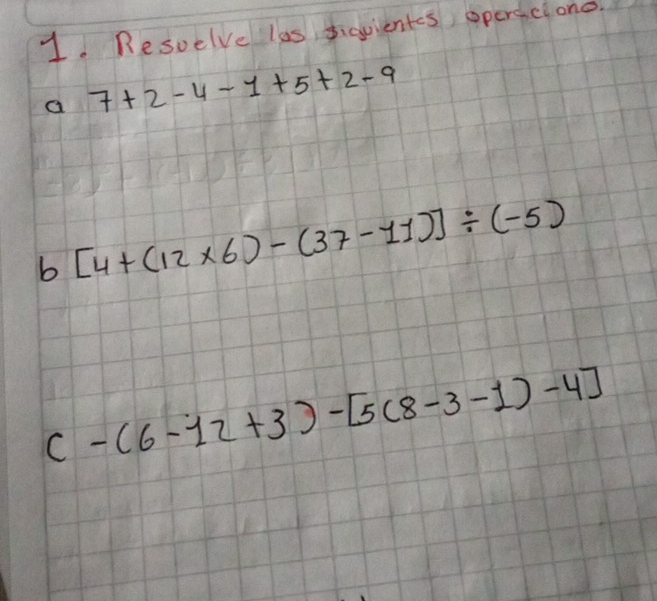 1. Resuelve las siguientes operacione.
a 7+2-4-1+5+2-9
b [4+(12×6)-(37-11)]÷(-5)
c -(6-12+3)-[5(8-3-1)-4]